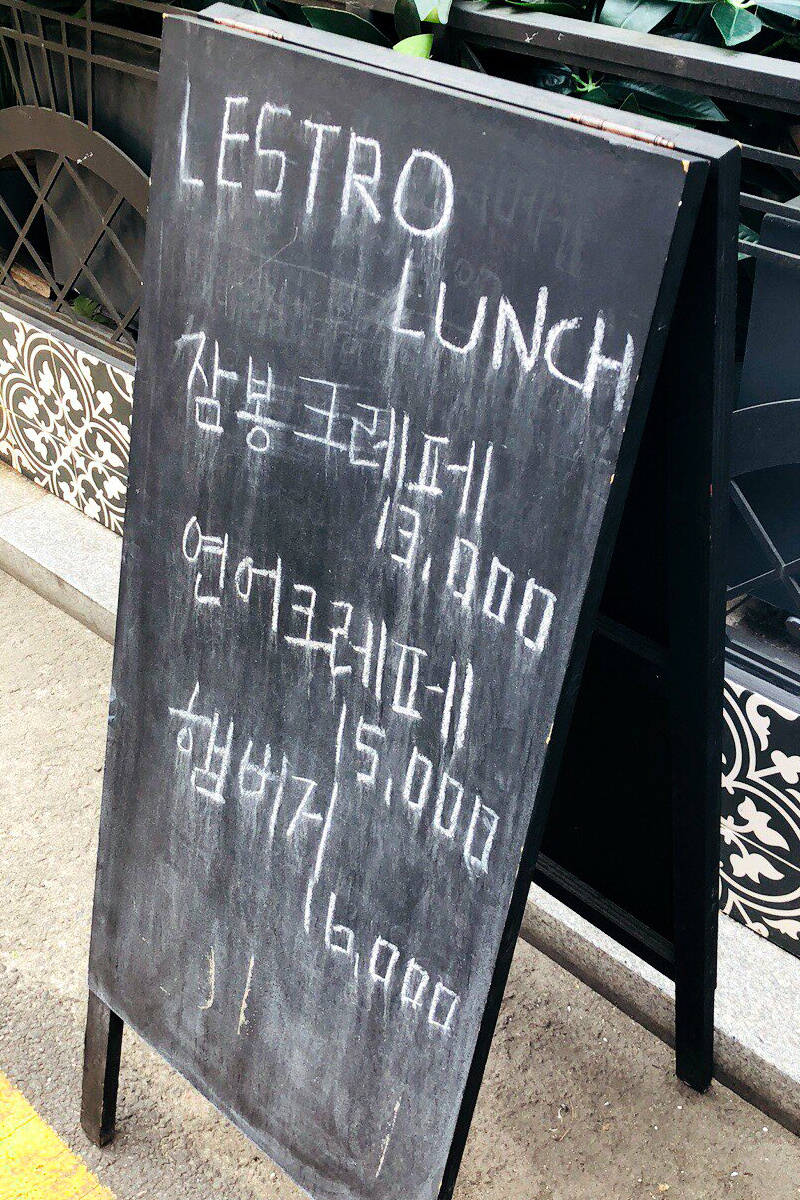 LESTRO
LUNCH
잠봉크레페
13,000
연어크레페
15,000
햄버거
16,000